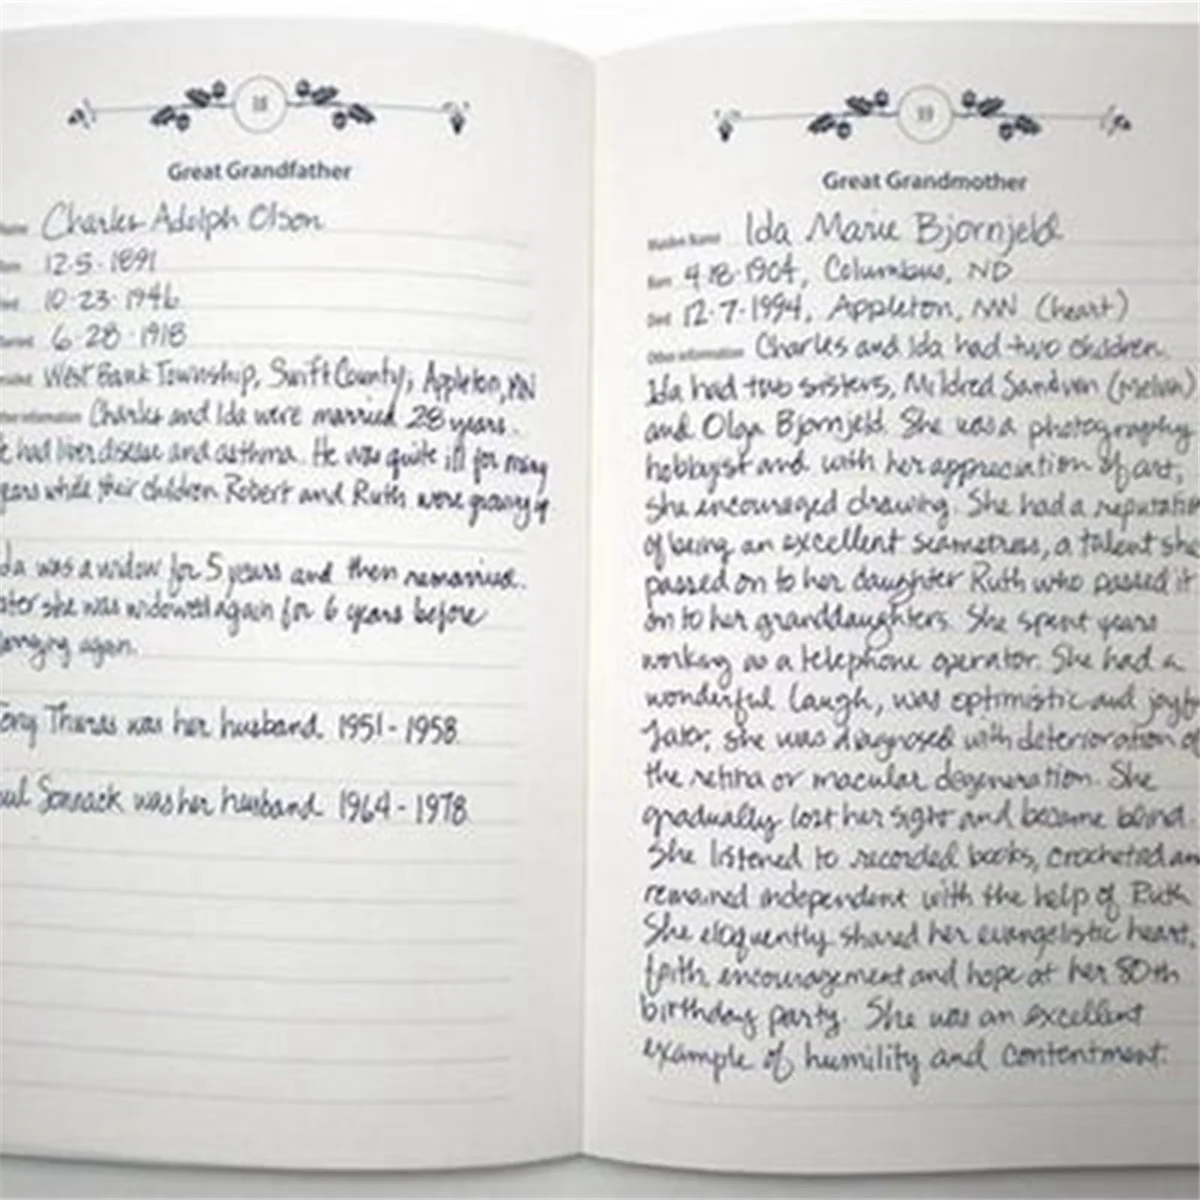 18
Great Grandfather
Name Charles Adolph Olson
Born 12·5·1891
Died 10·23·1946
Married 6·28·1918
West Bank Township, Swift County, Appleton, MN
Other information Charles and Ida were married 28 years.
He had liver disease and asthma. He was quite ill for many
years while their children Robert and Ruth were growing up
Ida was a widow for 5 years and then remarried.
Later she was widowed again for 6 years before
again.
Tony was her husband 1951 - 1958
Paul was her husband 1964 - 1978
19
Great Grandmother
Maiden Name Ida Marie Bjornjeld
Born 4·18·1904, Columbus, ND
Died 12·7·1994, Appleton, MN (heart)
Other information Charles and Ida had two children.
Ida had two sisters, Mildred Sandven (Melvin)
and Olga Bjornjeld. She was a photography
hobbyist and with her appreciation of art,
she encouraged drawing. She had a reputation
of being an excellent seamstress, a talent she
passed on to her daughter Ruth who passed it
on to her granddaughters. She spent years
working as a telephone operator. She had a
wonderful laugh, was optimistic and joyful
Later, she was diagnosed with deterioration of
the retina or macular degeneration. She
gradually lost her sight and became blind.
She listened to recorded books, crocheted and
remained independent with the help of Ruth
She eloquently shared her evangelistic heart,
faith, encouragement and hope at her 80th
birthday party. She was an excellent
example of humility and contentment.